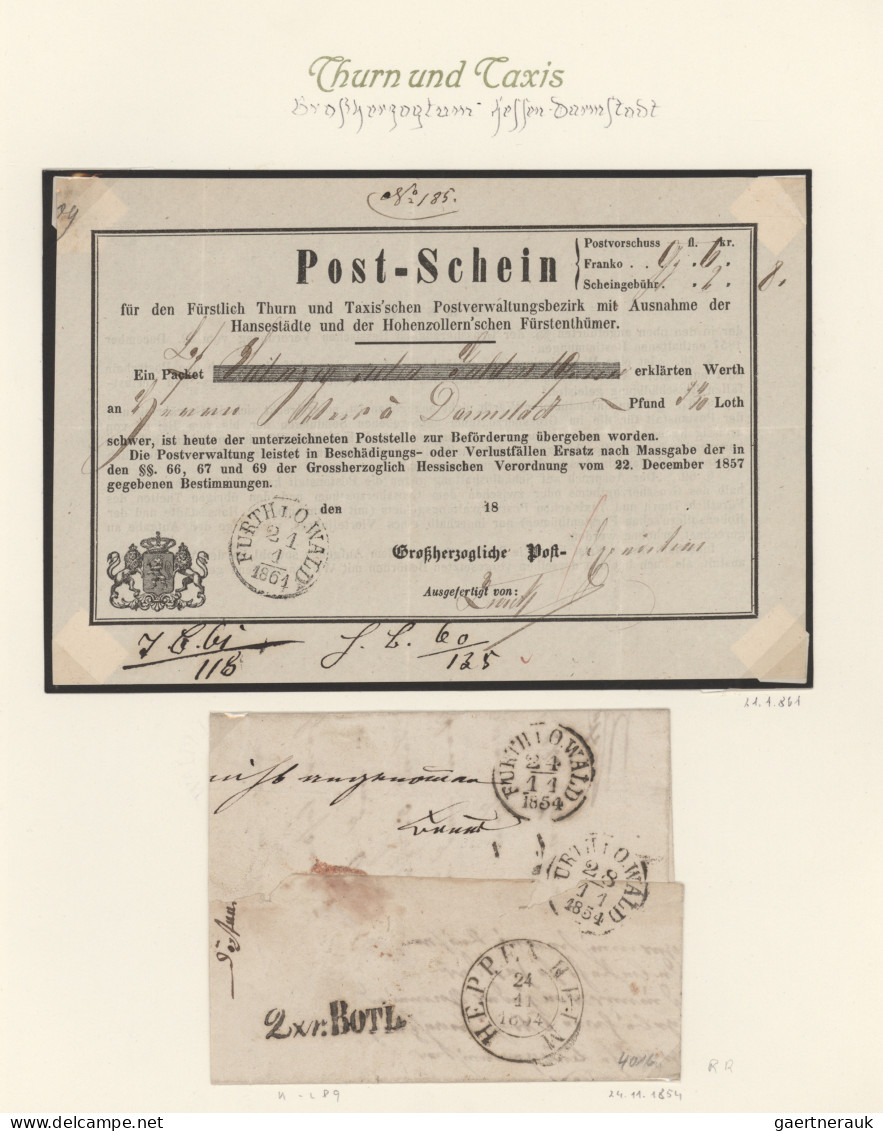 Thurn und Taxis
Großherzogtum Hessen-Darmstadt
No 185.
Postvorschuss fl. kr.
Post-Schein
Franko . .
Scheingebühr . 8.
für den Fürstlich Thurn und Taxis'schen Postverwaltungsbezirk mit Ausnahme der
Hansestädte und der Hohenzollern'schen Fürstenthümer.
Ein Packet erklärten Werth
an Herrn Darmstadt Pfund Loth
schwer, ist heute der unterzeichneten Poststelle zur Beförderung übergeben worden.
Die Postverwaltung leistet in Beschädigungs- oder Verlustfällen Ersatz nach Massgabe der in
den §§. 66, 67 und 69 der Grossherzoglich Hessischen Verordnung vom 22. December 1857
gegebenen Bestimmungen.
den 18
FURTH I. O. WALD
21
1
1861
Großherzogliche Post-
Ausgefertigt von:
118
60
125
21.1.861
nicht angenommen
FURTH I O. WALD
24
11
1854
URTH I O. WALD
28
11
1854
HEPPENHEIM
24
11
1854
2xr. BOTL
RR
24.11.1854
gaertnerauk